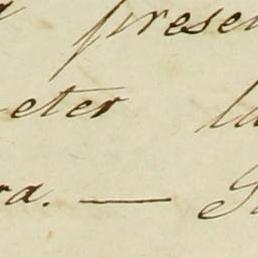 presen
eter la
ra. —